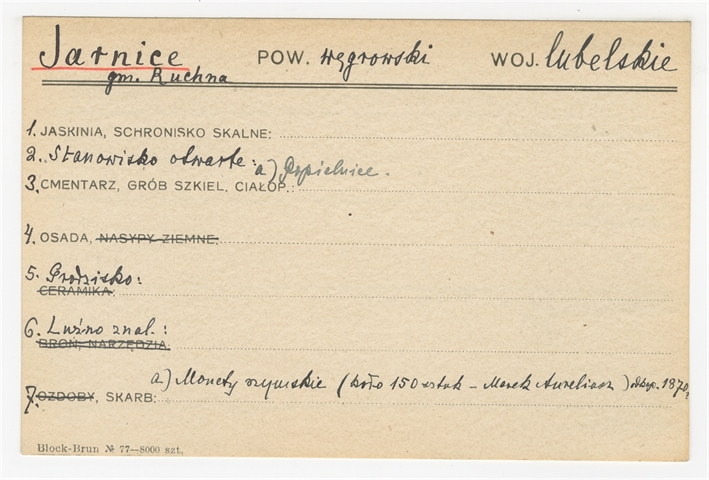 Jarnice POW. węgrowski WOJ. lubelskie
gm. Ruchna
1. JASKINIA, SCHRONISKO SKALNE:
2. Stanowisko otwarte:
a) Popielnice.
3. CMENTARZ, GRÓB SZKIEL. CIAŁOP.:
4. OSADA, NASYPY ZIEMNE:
5. Grodzisko:
CERAMIKA:
6. Luźno znal.:
BROŃ, NARZĘDZIA:
a) Monety rzymskie (koło 150 sztuk – Marek Aureliusz) odkop. 1870.
7. OZDOBY, SKARB:
Block-Brun № 77—8000 szt.